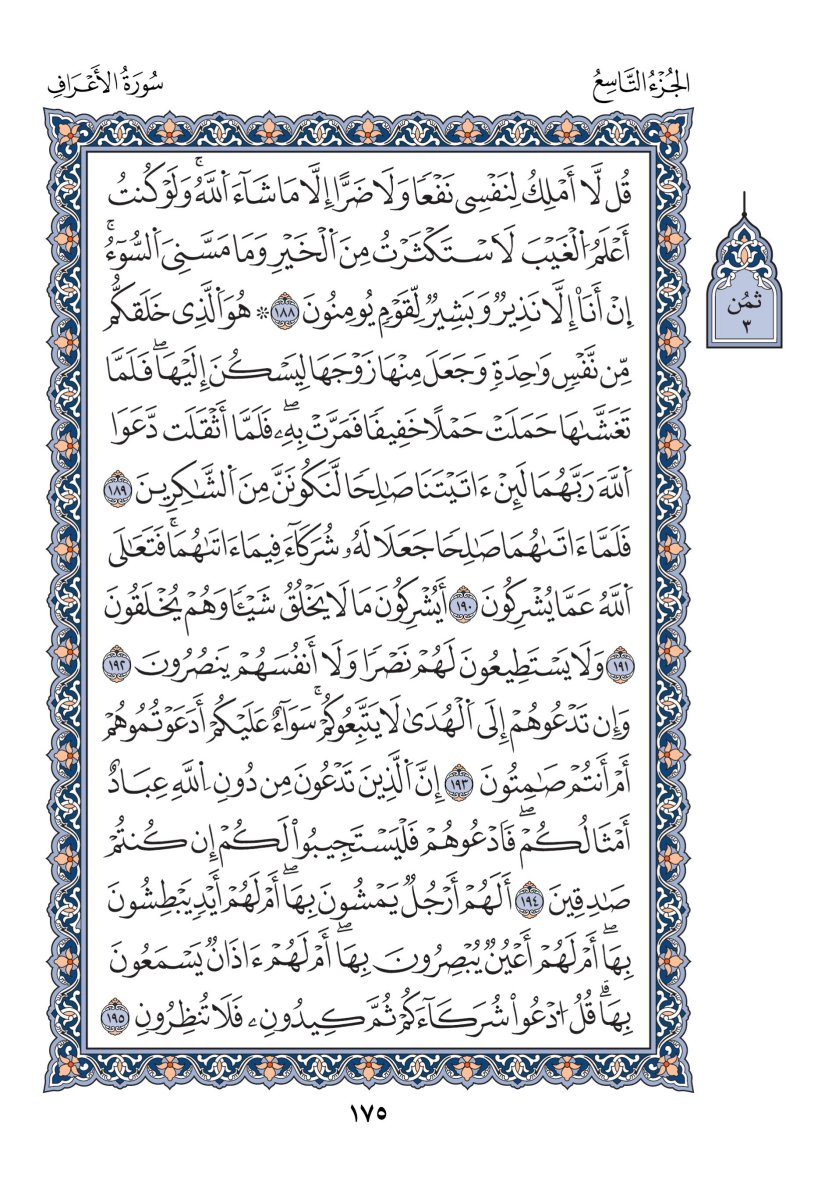 الجُزْءُ التَّاسِعُ
سُورَةُ الأَعْرَافِ
قُل لَّا أَمْلِكُ لِنَفْسِى نَفْعًا وَلَا ضَرًّا إِلَّا مَا شَآءَ اَللَّهُۚ وَلَوْ كُنتُ
أَعْلَمُ اُلْغَيْبَ لَاسْتَكْثَرْتُ مِنَ اَلْخَيْرِ وَمَا مَسَّنِىَ اَلسُّوٓءُۚ
إِنْ أَنَا۠ إِلَّا نَذِيرٌ وَبَشِيرٌ لِّقَوْمٍ يُومِنُونَ ١٨٨ ۞ هُوَ اَلَّذِى خَلَقكُّم
مِّن نَّفْسٍ وَٰحِدَةٍ وَجَعَلَ مِنْهَا زَوْجَهَا لِيَسْكُنَ إِلَيْهَاۖ فَلَمَّا
تَغَشَّىٰهَا حَمَلَتْ حَمْلًا خَفِيفًا فَمَرَّتْ بِهِۦۖ فَلَمَّا أَثْقَلَت دَّعَوَا
اَللَّهَ رَبَّهُمَا لَئِنْ ءَاتَيْتَنَا صَٰلِحًا لَّنَكُونَنَّ مِنَ اَلشَّٰكِرِينَ ١٨٩
فَلَمَّا ءَاتَىٰهُمَا صَٰلِحًا جَعَلَا لَهُۥ شُرَكَآءَ فِيمَا ءَاتَىٰهُمَاۚ فَتَعَٰلَى
اَللَّهُ عَمَّا يُشْرِكُونَ ١٩٠ أَيُشْرِكُونَ مَا لَا يَخْلُقُ شَيْـًٔا وَهُمْ يُخْلَقُونَ
١٩١ وَلَا يَسْتَطِيعُونَ لَهُمْ نَصْرًا وَلَا أَنفُسَهُمْ يَنصُرُونَ ١٩٢
وَإِن تَدْعُوهُمْ إِلَى اَلْهُدَىٰ لَا يَتَّبِعُوكُمْۚ سَوَآءٌ عَلَيْكُمْ أَدَعَوْتُمُوهُمْ
أَمْ أَنتُمْ صَٰمِتُونَ ١٩٣ إِنَّ اَلَّذِينَ تَدْعُونَ مِن دُونِ اِللَّهِ عِبَادٌ
أَمْثَالُكُمْۖ فَادْعُوهُمْ فَلْيَسْتَجِيبُواْ لَكُمْ إِن كُنتُمْ
صَٰدِقِينَ ١٩٤ أَلَهُمْ أَرْجُلٌ يَمْشُونَ بِهَاۖ أَمْ لَهُمْ أَيْدٍ يَبْطِشُونَ
بِهَاۖ أَمْ لَهُمْ أَعْيُنٌ يُبْصِرُونَ بِهَاۖ أَمْ لَهُمْ ءَاذَانٌ يَسْمَعُونَ
بِهَاۗ قُلُ اُدْعُواْ شُرَكَآءَكُمْ ثُمَّ كِيدُونِۦ فَلَا تُنظِرُونِ ١٩٥
ثمُن
٣
١٧٥